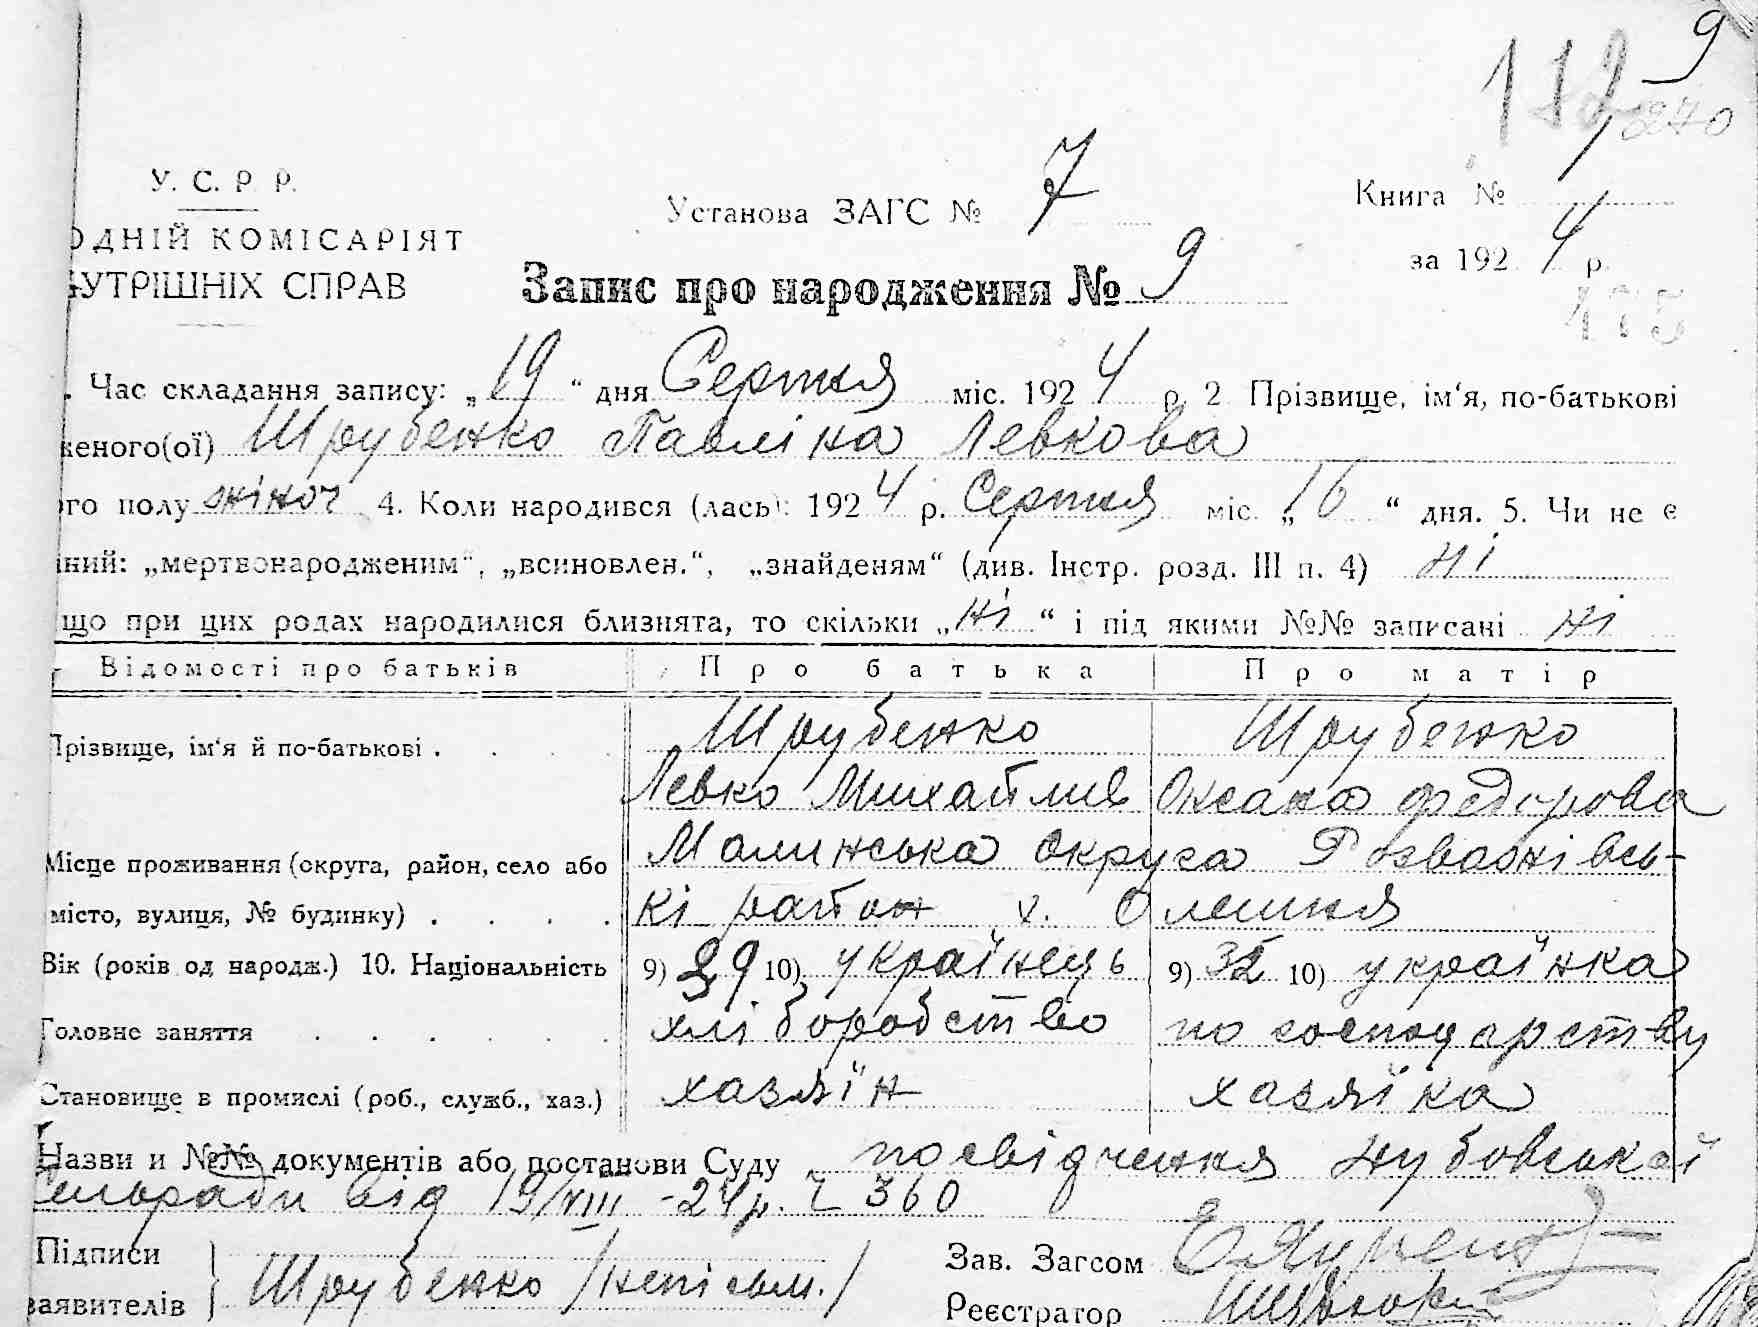 9
112
270
У. С. Р. Р.
ОДНІЙ КОМІСАРІЯТ
УТРІШНІХ СПРАВ
Установа ЗАГС № 7
Книга №
за 1924 р.
Запис про народження № 9
175
Час складання запису: „19“ дня Серпня міс. 1924 р. 2 Прізвище, ім‘я, по-батькові
женого(ої) Шрубенко Павліна Левкова
ого полу жіноч 4. Коли народився (лась): 1924 р. Серпня міс. „16“ дня. 5. Чи не є
ний: „мертвонародженим“, „всиновлен.“, „знайденям“ (див. Інстр. розд. III п. 4) ні
що при цих родах народилися близнята, то скільки „ні“ і під якими №№ записані ні
Відомості про батьків Про батька Про матір
Прізвище, ім‘я й по-батькові . . . . Шрубенко Шрубенко
Левко Михайлив Оксана Федорова
Місце проживання (округа, район, село або Малинська округа Розважівсь-
місто, вулиця, № будинку) . . . . кі район х. Олешня
Вік (років од народж.) 10. Національність 9) 39 10) українець 9) 32 10) українка
Головне заняття . . . . . . хліборобство по господарству
Становище в промислі (роб., служб., хаз.) хазяїн хазяїка
Назви и №№ документів або постанови Суду посвідчення
Сельради від 19/VIII -24р. Ч 360
Підписи
заявителів } Шрубенко /непісьм./
Зав. Загсом
Реєстратор